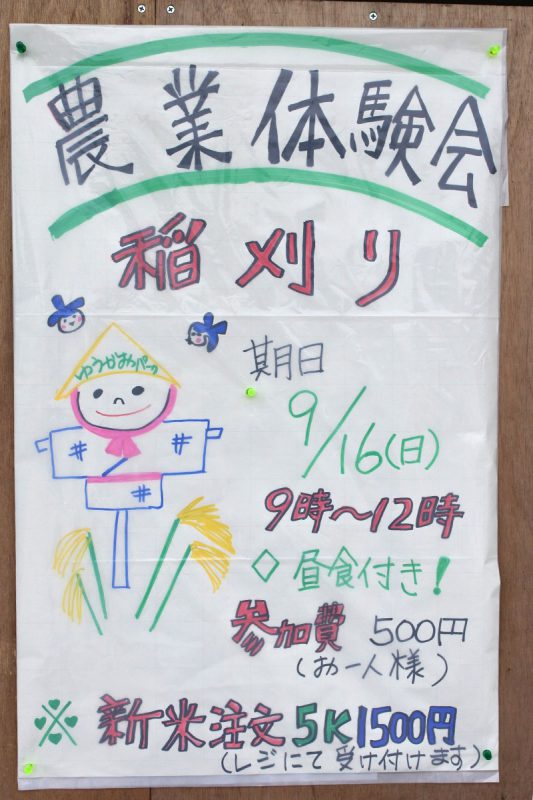 農業体験会
稲刈り
ゆうがおパーク
期日
9/16(日)
9時〜12時
◇昼食付き!
参加費 500円
(お一人様)
※新米注文5K1500円
(レジにて受け付けます)